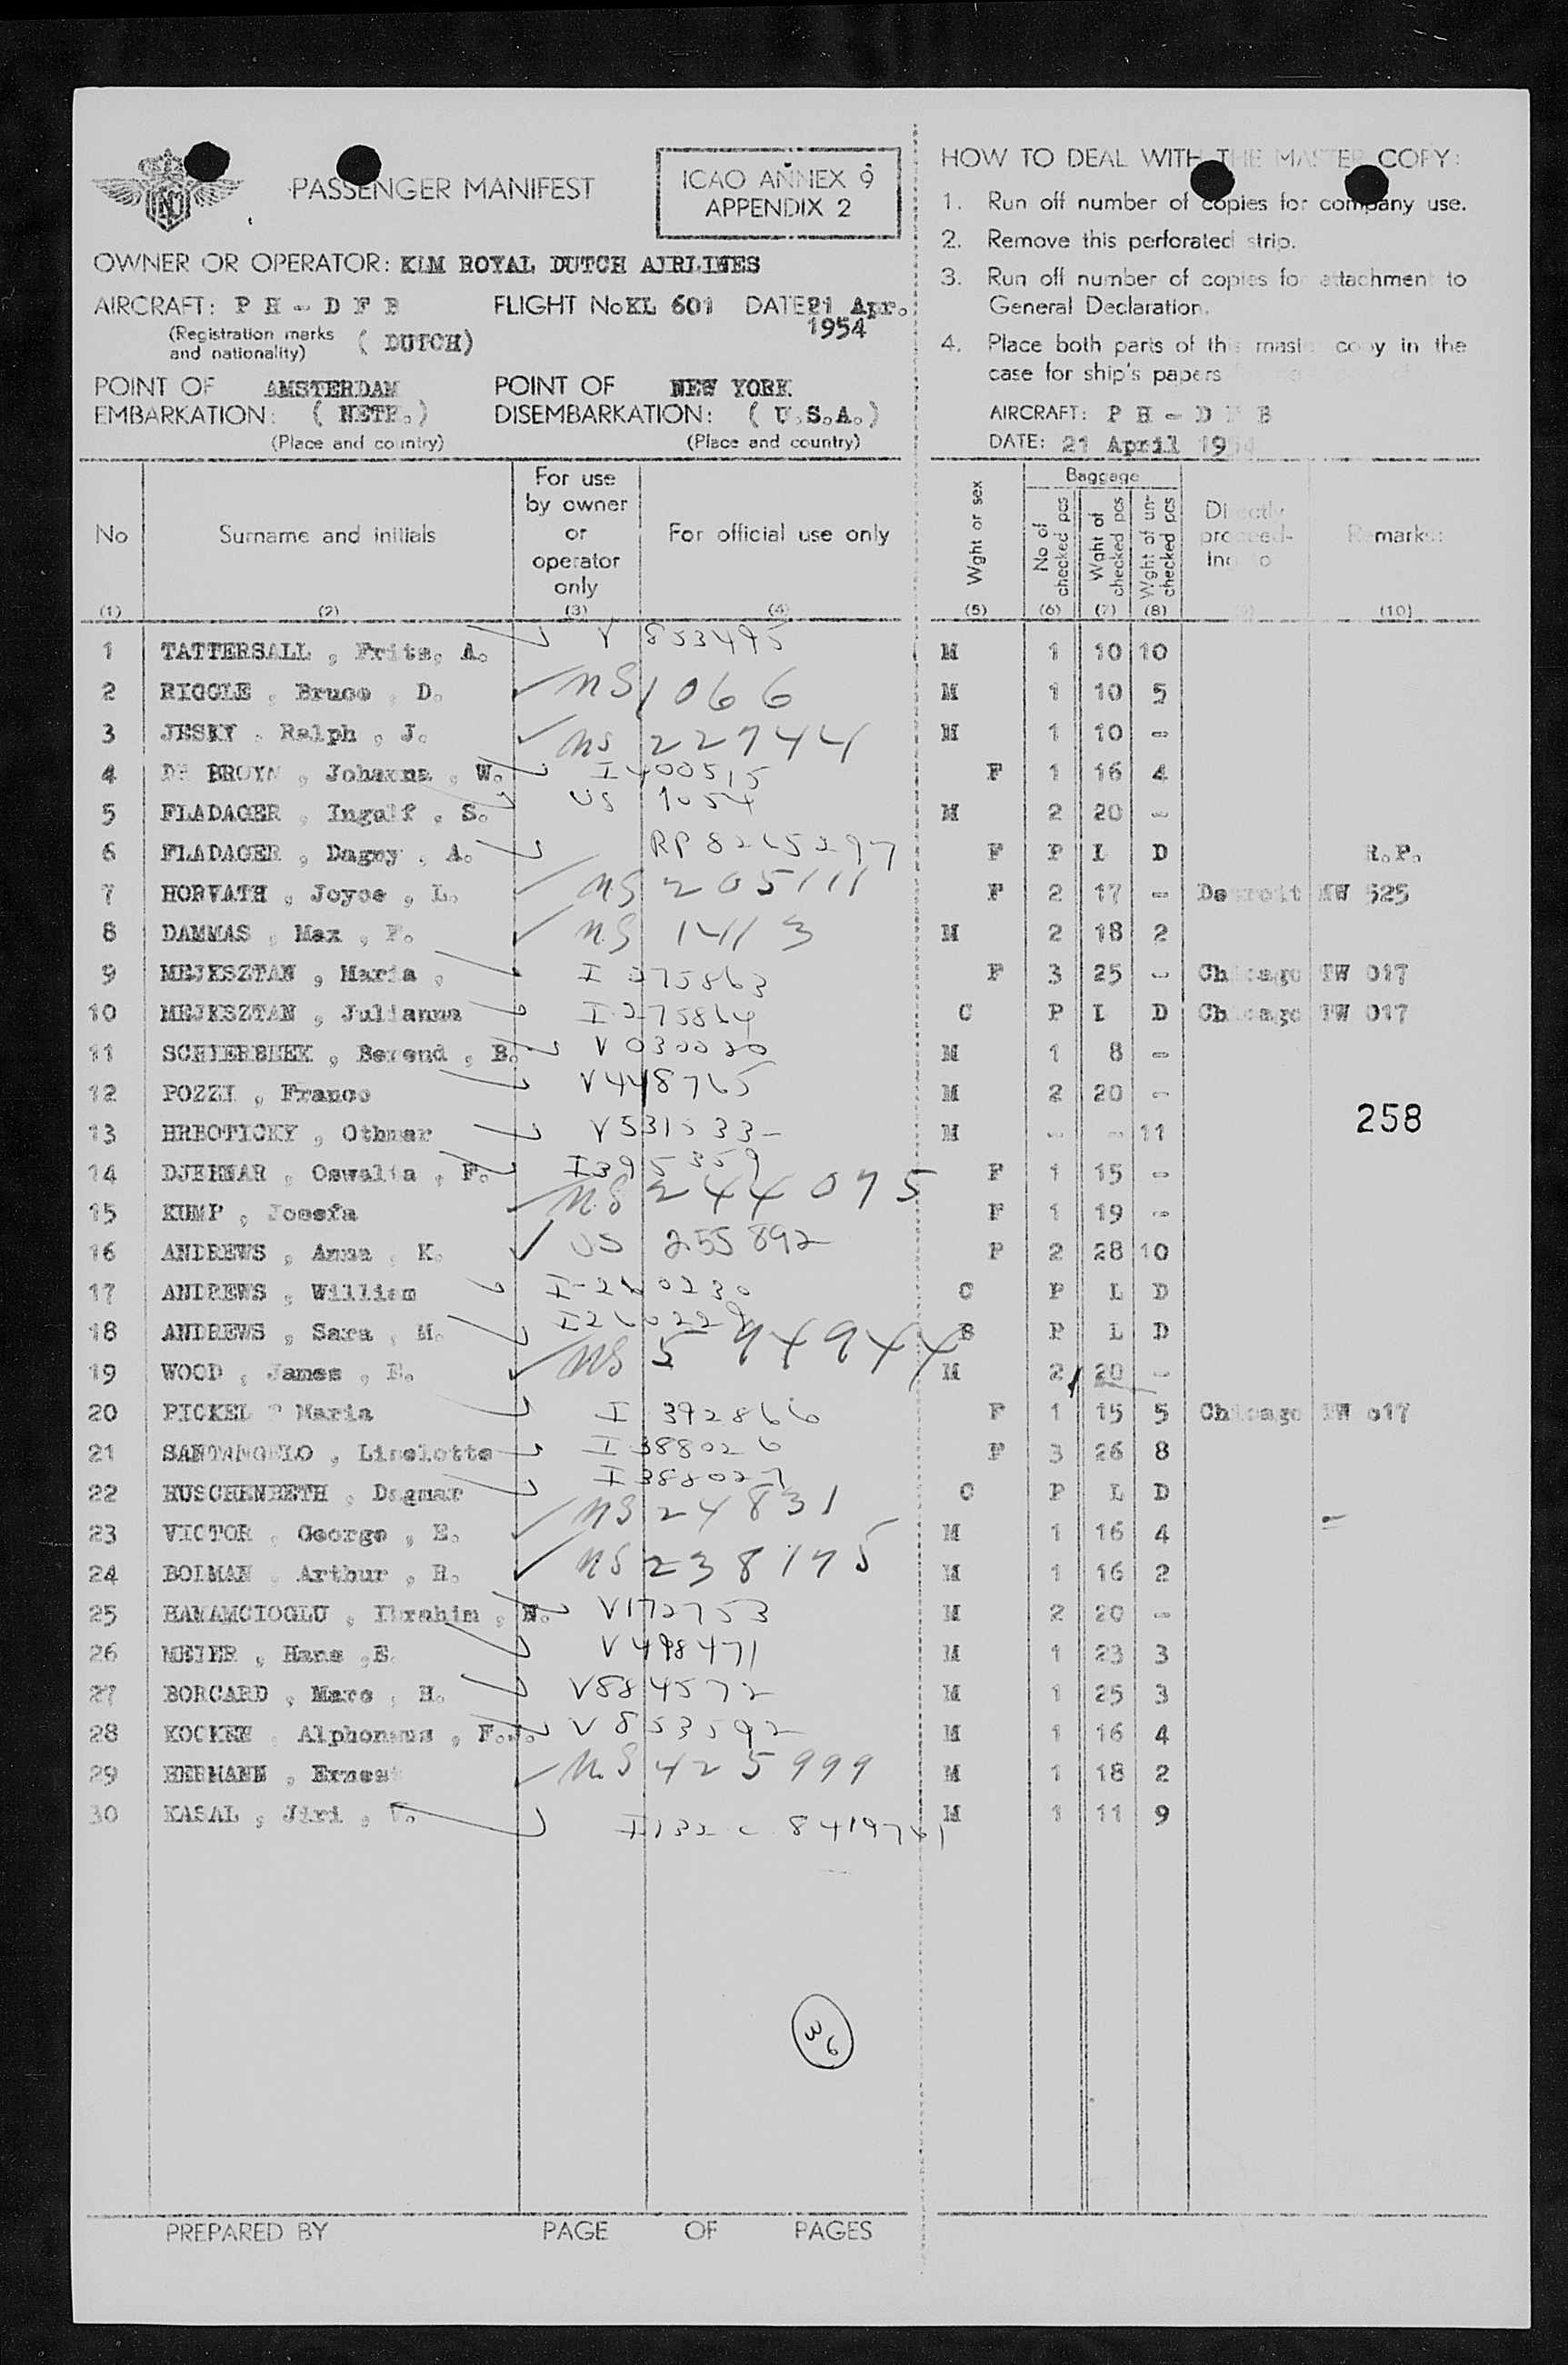 PASSENGER MANIFEST
ICAO ANNEX 9
APPENDIX 2
OWNER OR OPERATOR: KLM ROYAL DUTCH AIRLINES
AIRCRAFT: P H - D F B FLIGHT No KL 601 DATE: 21 Apr. 1954
(Registration marks and nationality) ( DUTCH)
POINT OF EMBARKATION: AMSTERDAM ( NETH.)
(Place and country)
POINT OF DISEMBARKATION: NEW YORK ( U.S.A.)
(Place and country)
HOW TO DEAL WITH THE MASTER COPY:
1. Run off number of copies for company use.
2. Remove this perforated strip.
3. Run off number of copies for attachment to
General Declaration.
4. Place both parts of this master copy in the
case for ship's papers
AIRCRAFT: P H - D F B
DATE: 21 April 1954
No (1)
Surname and initials (2)
For use by owner or operator only (3)
For official use only (4)
Wght or sex (5)
Baggage
No of checked pcs (6)
Wght of checked pcs (7)
Wght of un-checked pcs (8)
Directly proceed-ing to (9)
Remarks: (10)
1 TATTERSALL , Frits, A. V 853495 M 1 10 10
2 RIGGLE , Bruce , D. NS 1066 M 1 10 5
3 JESKY , Ralph , J. NS 22744 M 1 10 -
4 DE BRUYN , Johanna , W. I 400515 F 1 16 4
5 FLADAGER , Ingolf , S. US 1054 M 2 20 -
6 FLADAGER , Dagny , A. RP 8265297 F P L D R.P.
7 HORVATH , Joyce , L. NS 205111 F 2 17 - Detroit NW 525
8 DAMMAS , Max , F. NS 14113 M 2 18 2
9 MEJESZTAN , Maria , I 275863 F 3 25 - Chicago TW 017
10 MEJESZTAN , Julianna I 275864 C P L D Chicago TW 017
11 SCHIERBEEK , Berend , B. V 030020 M 1 8 -
12 POZZI , Franco V448765 M 2 20 -
13 HRBOTICKY , Othmar V531533 M - - 11
14 DJEHMAR , Oswalia , F. I395359 F 1 15 -
15 KUMP , Josefa NS 244075 F 1 19 -
16 ANDREWS , Anna , K. US 255892 F 2 28 10
17 ANDREWS , William I-260230 C P L D
18 ANDREWS , Sara , M. I260229 P L D
19 WOOD , James , E. NS 594944 M 2 20 -
20 PICKEL Maria I 392866 F 1 15 5 Chicago TW 017
21 SANTANGELO , Liselotte I 388026 F 3 26 8
22 HUSCHENBETH , Dagmar I 388027 C P L D
23 VICTOR , George , E. NS 24831 M 1 16 4
24 BOLMAN , Arthur , H. NS 238175 M 1 16 2
25 HAMAMCIOGLU , Ibrahim , N. V172753 M 2 20 -
26 MEIER , Hans ,E. V 498471 M 1 23 3
27 BORCARD , Marc , H. V884572 M 1 25 3
28 KOCKEN , Alphonsus , F.J. V 853592 M 1 16 4
29 HERMANN , Ernest NS 425999 M 1 18 2
30 KASAL , Jiri , V. I132 c 8419741 M 1 11 9
258
36
PREPARED BY PAGE OF PAGES